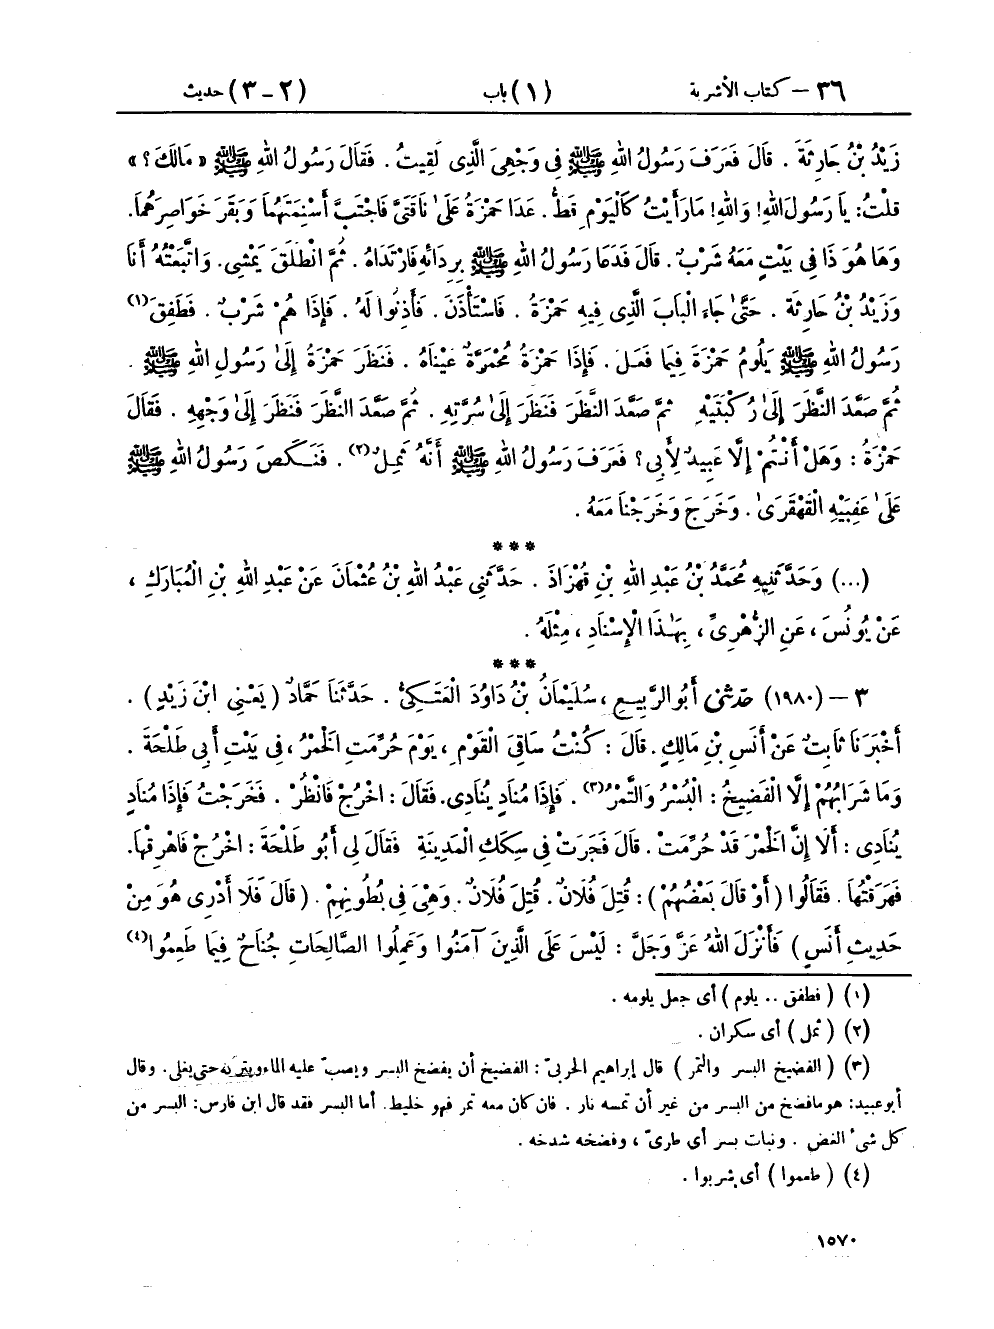 ٣٦ – كتاب الأشربة (١) باب (٢ – ٣) حديث
زَيْدُ بْنُ حَارِثَةَ . قَالَ فَعَرَفَ رَسُولُ اللهِ ﷺ فِى وَجْهِىَ الَّذِى لَقِيتُ . فَقَالَ رَسُولُ اللهِ ﷺ « مَالَكَ ؟ »
قلتُ: يا رَسُولَ اللهِ! وَاللهِ! مَارَأَيْتُ كَالْيَوْمِ قَطُّ . عَدَا حَمْزَةُ عَلَىٰ نَاقَتَىَّ فَاجْتَبَّ أَسْنِمَتَهُمَا وَبَقَرَ خَوَاصِرَهُمَا.
وَهَا هُوَ ذَا فِى بَيْتٍ مَعَهُ شَرْبٌ . قَالَ فَدَعَا رَسُولُ اللهِ ﷺ بِرِدَائِهِ فَارْتَدَاهُ . ثُمَّ انْطَلَقَ يَمْشِى. وَاتَّبَعْتُهُ أَنَا
وَزَيْدُ بْنُ حَارِثَةَ . حَتَّىٰ جَاءَ الْبَابَ الَّذِى فِيهِ حَمْزَةُ . فَاسْتَأْذَنَ . فَأَذِنُوا لَهُ . فَإِذَا هُمْ شَرْبٌ . فَطَفِقَ (١)
رَسُولُ اللهِ ﷺ يَلُومُ حَمْزَةَ فِيمَا فَعَلَ . فَإِذَا حَمْزَةُ مُحْمَرَّةٌ عَيْنَاهُ . فَنَظَرَ حَمْزَةُ إِلَىٰ رَسُولِ اللهِ ﷺ .
ثُمَّ صَعَّدَ النَّظَرَ إِلَىٰ رُكْبَتَيْهِ ثُمَّ صَعَّدَ النَّظَرَ فَنَظَرَ إِلَىٰ سُرَّتِهِ . ثُمَّ صَعَّدَ النَّظَرَ فَنَظَرَ إِلَىٰ وَجْهِهِ . فَقَالَ
حَمْزَةُ : وَهَلْ أَنْتُمْ إِلَّا عَبِيدٌ لِأَبِى ؟ فَعَرَفَ رَسُولُ اللهِ ﷺ أَنَّهُ ثَمِلٌ (٢) . فَنَكَصَ رَسُولُ اللهِ ﷺ
عَلَىٰ عَقِبَيْهِ الْقَهْقَرَىٰ . وَخَرَجَ وَخَرَجْنَا مَعَهُ .
* * *
(...) وَحَدَّثَنِيهِ مُحَمَّدُ بْنُ عَبْدِ اللهِ بْنِ قُهْزَاذَ . حَدَّثَنِى عَبْدُ اللهِ بْنُ عُثْمَانَ عَنْ عَبْدِ اللهِ بْنِ الْمُبَارَكِ ،
عَنْ يُونُسَ ، عَنِ الزُّهْرِىِّ ، بِهَـٰذَا الْإِسْنَادِ ، مِثْلَهُ .
* * *
٣ – (١٩٨٠) حَدَّثَنِى أَبُو الرَّبِيعِ ، سُلَيْمَانُ بْنُ دَاوُدَ الْعَتَكِىُّ . حَدَّثَنَا حَمَّادٌ ( يَعْنِى ابْنَ زَيْدٍ ) .
أَخْبَرَنَا ثَابِتٌ عَنْ أَنَسِ بْنِ مَالِكٍ . قَالَ : كُنْتُ سَاقِىَ الْقَوْمِ ، يَوْمَ حُرِّمَتِ الْخَمْرُ ، فِى بَيْتِ أَبِى طَلْحَةَ .
وَمَا شَرَابُهُمْ إِلَّا الْفَضِيخُ : الْبُسْرُ وَالتَّمْرُ (٣) . فَإِذَا مُنَادٍ يُنَادِى. فَقَالَ : اخْرُجْ فَانْظُرْ . فَخَرَجْتُ فَإِذَا مُنَادٍ
يُنَادِى : أَلَا إِنَّ الْخَمْرَ قَدْ حُرِّمَتْ . قَالَ فَجَرَتْ فِى سِكَكِ الْمَدِينَةِ فَقَالَ لِى أَبُو طَلْحَةَ : اخْرُجْ فَاهْرِقْهَا.
فَهَرَقْتُهَا . فَقَالُوا ( أَوْ قَالَ بَعْضُهُمْ ) : قُتِلَ فُلَانٌ . قُتِلَ فُلَانٌ . وَهْىَ فِى بُطُونِهِمْ . ( قَالَ فَلَا أَدْرِى هُوَ مِنْ
حَدِيثِ أَنَسٍ ) فَأَنْزَلَ اللهُ عَزَّ وَجَلَّ : لَيْسَ عَلَى الَّذِينَ آمَنُوا وَعَمِلُوا الصَّالِحَاتِ جُنَاحٌ فِيمَا طَعِمُوا (٤)
(١) ( فطفق .. يلوم ) أى جعل يلومه .
(٢) ( ثمل ) أى سكران .
(٣) ( الفضيخ البسر والتمر ) قال إبراهيم الحربىّ : الفضيخ أن يفضخ البسر ويصبّ عليه الماء ويتركه حتى يغلى. وقال
أبو عبيد: هو مافضخ من البسر من غير أن تمسه نار . فان كان معه تمر فهو خليط. أما البسر فقد قال ابن فارس: البسر من
كل شىء الغض . ونبات بسر أى طرىّ ، وفضخه شدخه .
(٤) ( طعموا ) أى شربوا .
١٥٧٠